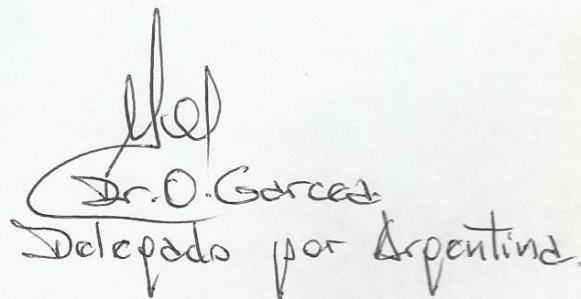 Dr. O. Garcea
Delegado por Argentina.